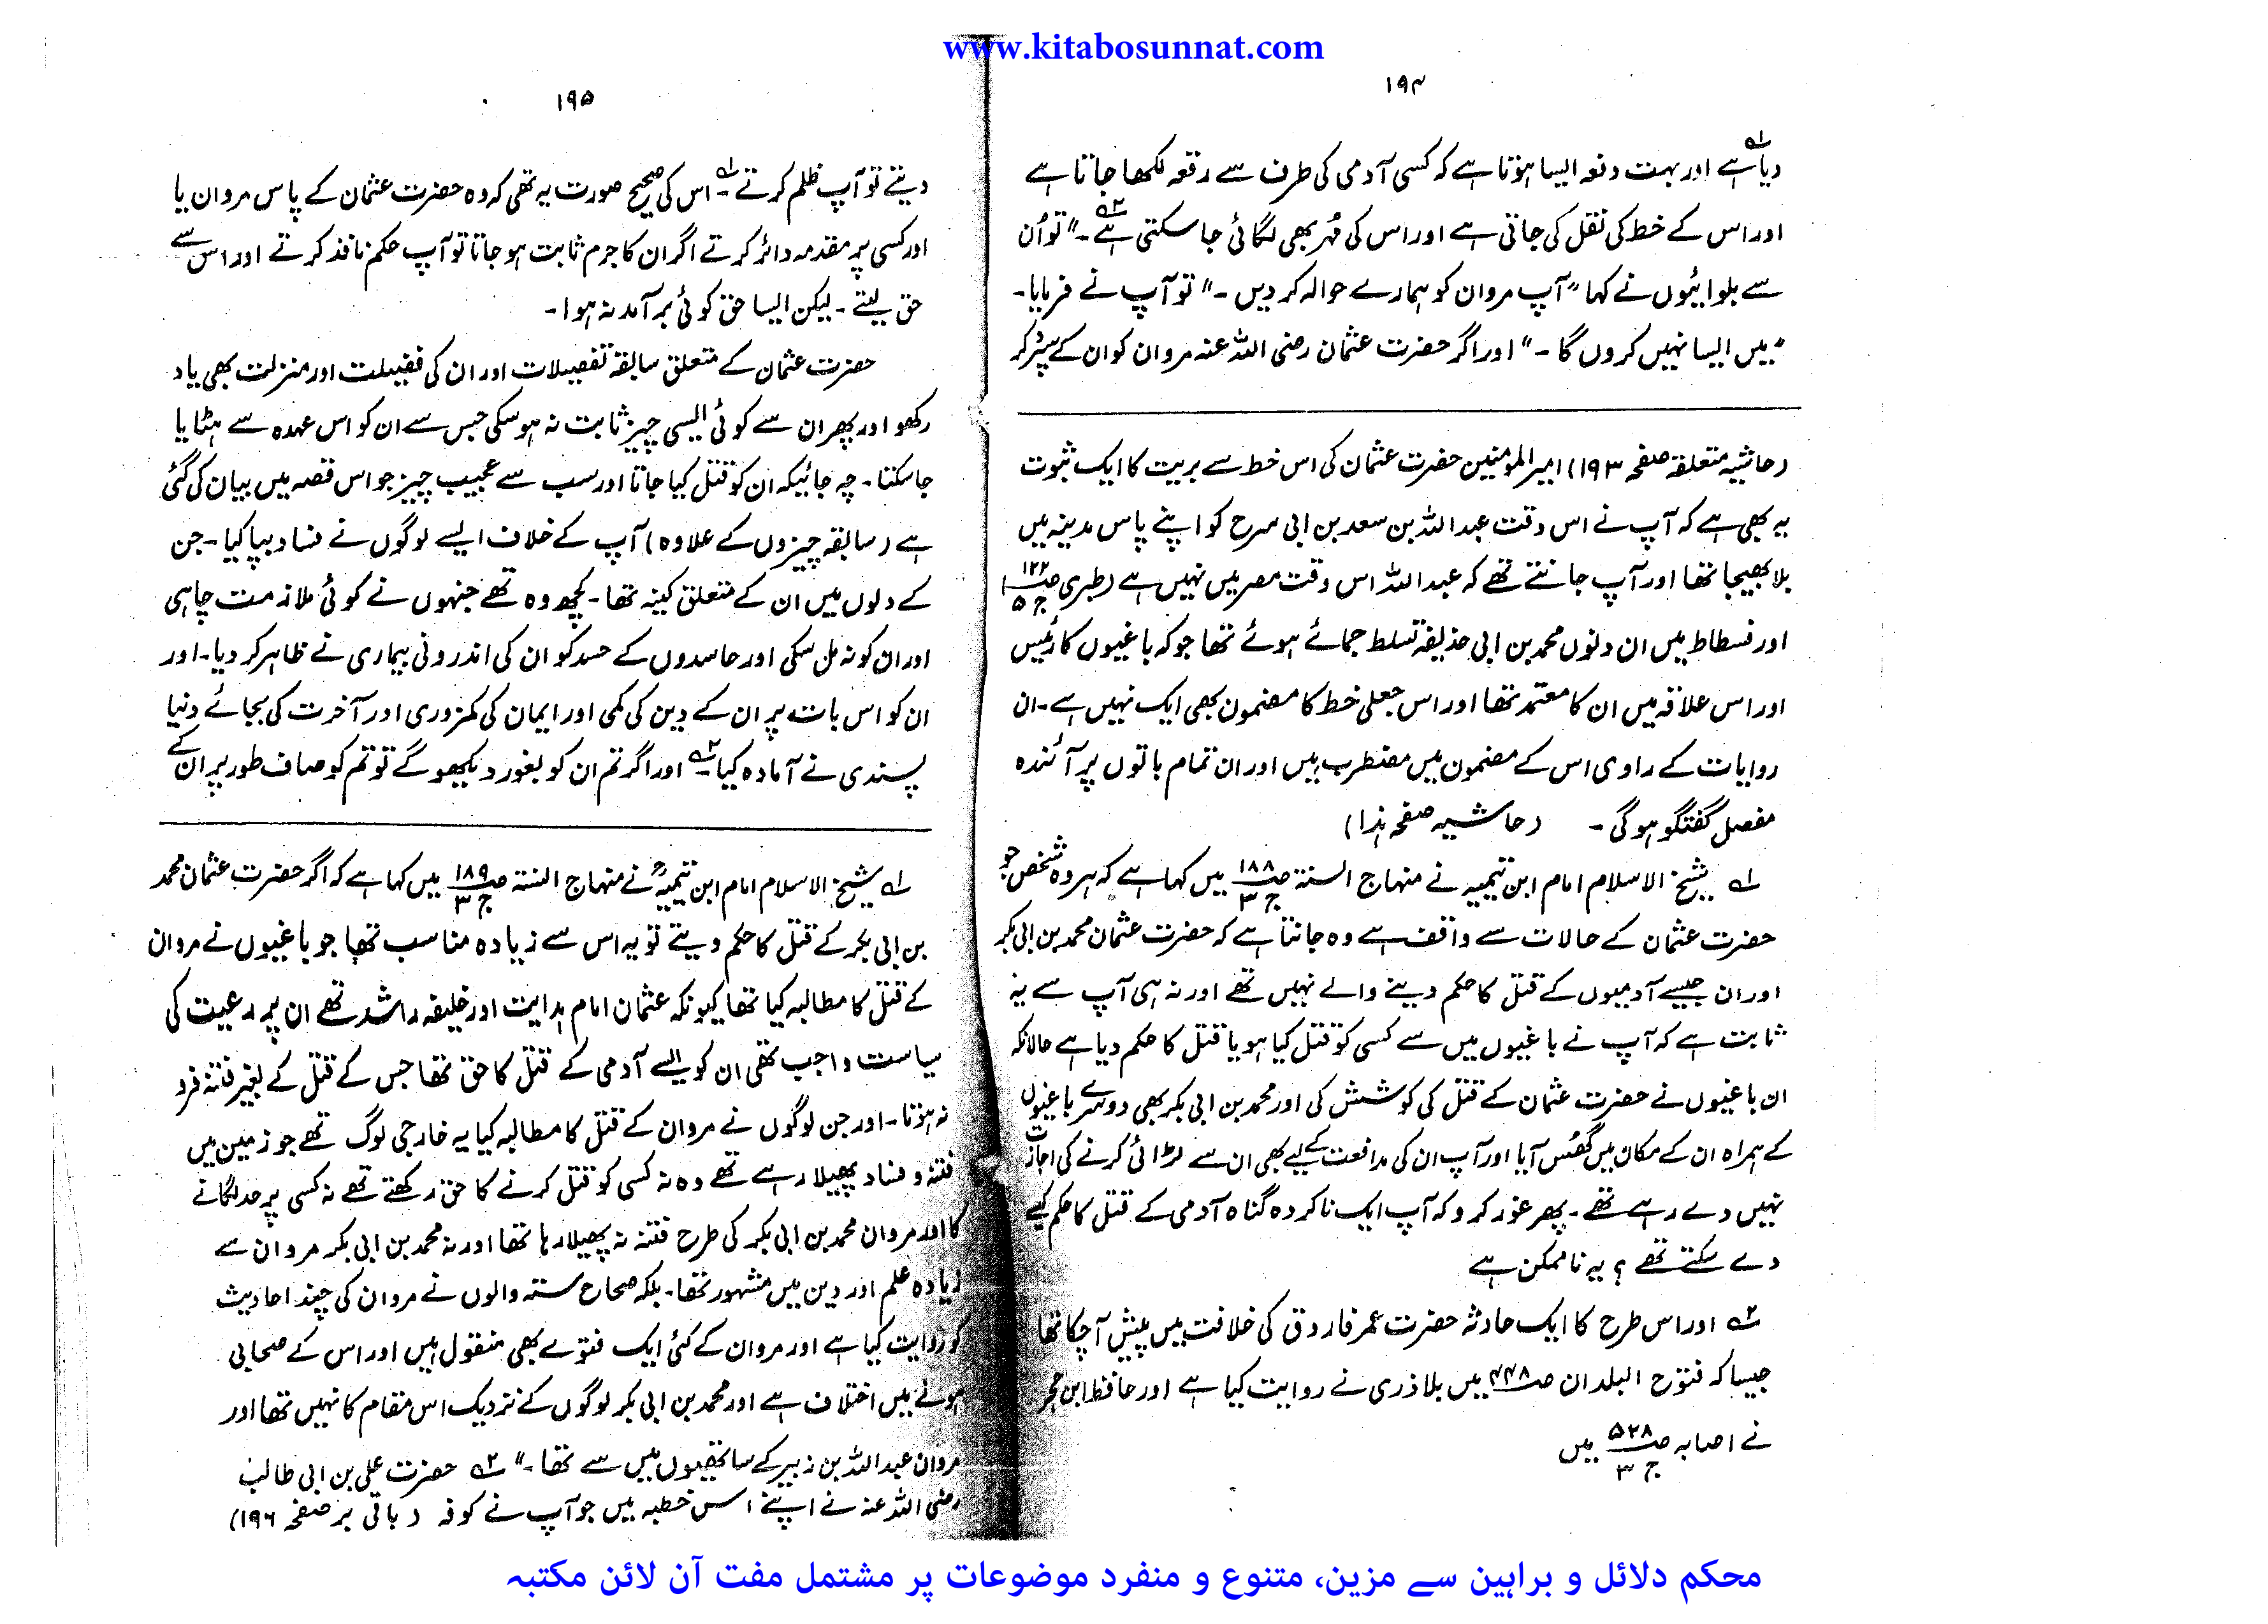 www.kitabosunnat.com
۱۹۴
دیا ہے۱ اور بہت دفعہ ایسا ہوتا ہے کہ کسی آدمی کی طرف سے رقعہ لکھا جاتا ہے
اور اس کے خط کی نقل کی جاتی ہے اور اس کی مُہر بھی لگائی جا سکتی ہے۲۔" تو اُن
سے بلوائیوں نے کہا "آپ مروان کو ہمارے حوالہ کر دیں۔" تو آپ نے فرمایا۔
"میں ایسا نہیں کروں گا۔" اور اگر حضرت عثمان رضی اللہ عنہ مروان کو ان کے سپرد کر
(حاشیہ متعلقہ صفحہ ۱۹۳) امیر المومنین حضرت عثمان کی اس خط سے بریت کا ایک ثبوت
یہ بھی ہے کہ آپ نے اس وقت عبداللہ بن سعد بن ابی سرح کو اپنے پاس مدینہ میں
بلا بھیجا تھا اور آپ جانتے تھے کہ عبداللہ اس وقت مصر میں نہیں ہے (طبری صـ ۱۲۲ ج ۵)
اور فسطاط میں ان دنوں محمد بن ابی حذیفہ تسلط جمائے ہوئے تھا جو کہ باغیوں کا رئیس
اور اس علاقہ میں ان کا معتمد تھا اور اس جعلی خط کا مضمون بھی ایک نہیں ہے۔ ان
روایات کے راوی اس کے مضمون میں مضطرب ہیں اور ان تمام باتوں پر آئندہ
مفصل گفتگو ہو گی۔ (حاشیہ صفحہ ہٰذا)
۱ شیخ الاسلام امام ابن تیمیہ نے منہاج السنۃ صـ ۱۸۸ ج ۳ میں کہا ہے کہ ہر وہ شخص جو
حضرت عثمان کے حالات سے واقف ہے وہ جانتا ہے کہ حضرت عثمان محمد بن ابی بکر
اور ان جیسے آدمیوں کے قتل کا حکم دینے والے نہیں تھے اور نہ ہی آپ سے یہ
ثابت ہے کہ آپ نے باغیوں میں سے کسی کو قتل کیا ہو یا قتل کا حکم دیا ہے حالانکہ
ان باغیوں نے حضرت عثمان کے قتل کی کوشش کی اور محمد بن ابی بکر بھی دوسرے باغیوں
کے ہمراہ ان کے مکان میں گھُس آیا اور آپ ان کی مدافعت کے لیے بھی ان سے لڑائی کرنے کی اجازت
نہیں دے رہے تھے۔ پھر غور کرو کہ آپ ایک ناکردہ گناہ آدمی کے قتل کا حکم کیسے
دے سکتے تھے؟ یہ ناممکن ہے
۲ اور اس طرح کا ایک حادثہ حضرت عمر فاروق کی خلافت میں پیش آچکا تھا
جیسا کہ فتوح البلدان صـ ۴۴۸ میں بلاذری نے روایت کیا ہے اور حافظ ابن حجر
نے اصابہ صـ ۵۲۸ ج ۳ میں
۱۹۵
دیتے تو آپ ظلم کرتے۱۔ اس کی صحیح صورت یہ تھی کہ وہ حضرت عثمان کے پاس مروان یا
اور کسی پر مقدمہ دائر کرتے اگر ان کا جرم ثابت ہو جاتا تو آپ حکم نافذ کرتے اور اس سے
حق لیتے۔ لیکن ایسا حق کوئی برآمد نہ ہوا۔
حضرت عثمان کے متعلق سابقہ تفصیلات اور ان کی فضیلت اور منزلت بھی یاد
رکھو اور پھر ان سے کوئی ایسی چیز ثابت نہ ہو سکی جس سے ان کو اس عہدہ سے ہٹایا
جا سکتا۔ چہ جائیکہ ان کو قتل کیا جاتا اور سب سے عجیب چیز جو اس قصہ میں بیان کی گئی
ہے (سابقہ چیزوں کے علاوہ) آپ کے خلاف ایسے لوگوں نے فساد بپا کیا۔ جن
کے دلوں میں ان کے متعلق کینہ تھا۔ کچھ وہ تھے جنہوں نے کوئی ملازمت چاہی
اور ان کو نہ مل سکی اور حاسدوں کے حسد کو ان کی اندرونی بیماری نے ظاہر کر دیا۔ اور
ان کو اس بات پر ان کے دین کی کمی اور ایمان کی کمزوری اور آخرت کی بجائے دنیا
پسندی نے آمادہ کیا۲۔ اور اگر تم ان کو بغور دیکھو گے تو تم کو صاف طور پر ان کے
۱ شیخ الاسلام امام ابن تیمیہؒ نے منہاج السنۃ صـ ۱۸۹ ج ۳ میں کہا ہے کہ اگر حضرت عثمان محمد
بن ابی بکر کے قتل کا حکم دیتے تو یہ اس سے زیادہ مناسب تھا جو باغیوں نے مروان
کے قتل کا مطالبہ کیا تھا کیونکہ عثمان امام ہدایت اور خلیفہ راشد تھے ان پر رعیت کی
سیاست واجب تھی ان کو ایسے آدمی کے قتل کا حق تھا جس کے قتل کے بغیر فتنہ فرو
نہ ہوتا۔ اور جن لوگوں نے مروان کے قتل کا مطالبہ کیا یہ خارجی لوگ تھے جو زمین میں
فتنہ و فساد پھیلا رہے تھے وہ نہ کسی کو قتل کرنے کا حق رکھتے تھے نہ کسی پر حد لگانے
کا اور مروان محمد بن ابی بکر کی طرح فتنہ نہ پھیلا رہا تھا اور نہ محمد بن ابی بکر مروان سے
زیادہ علم اور دین میں مشہور تھا۔ بلکہ صحاح ستہ والوں نے مروان کی چند احادیث
کو روایت کیا ہے اور مروان کے کئی ایک فتوے بھی منقول ہیں اور اس کے صحابی
ہونے میں اختلاف ہے اور محمد بن ابی بکر لوگوں کے نزدیک اس مقام کا نہیں تھا اور
مروان عبداللہ بن زبیر کے ساتھیوں میں سے تھا۔" ۲ حضرت علی بن ابی طالب
رضی اللہ عنہ نے اپنے اس خطبہ میں جو آپ نے کوفہ (باقی بر صفحہ ۱۹۶)
محکم دلائل و براہین سے مزین، متنوع و منفرد موضوعات پر مشتمل مفت آن لائن مکتبہ